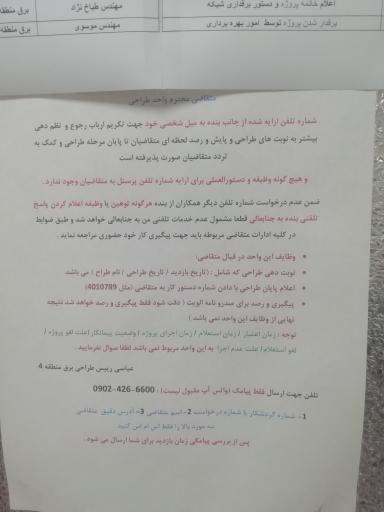 اعلام خاتمه پروژه و دستور برقداری شبکه
مهندس طباخ نژاد
برق منطقه
برقدار شدن پروژه توسط امور بهره برداری
مهندس موسوی
برق منطقه
متقاضی محترم واحد طراحی
شماره تلفن ارایه شده از جانب بنده به میل شخصی خود جهت تکریم ارباب رجوع و نظم دهی
بیشتر به نوبت های طراحی و پایش و رصد لحظه ای متقاضیان تا پایان مرحله طراحی و کمک به
تردد متقاضیان صورت پذیرفته است
و هیچ گونه وظیفه و دستورالعملی برای ارایه شماره تلفن پرسنل به متقاضیان وجود ندارد.
ضمن عدم درخواست شماره تلفن دیگر همکاران از بنده هرگونه توهین یا وظیفه اعلام کردن پاسخ
تلفنی بنده به جنابعالی قطعا مشمول عدم خدمات تلفنی من به جنابعالی خواهد شد و طبق ضوابط
در کلیه ادارات متقاضی مربوطه باید جهت پیگیری کار خود حضوری مراجعه نماید.
• وظایف این واحد در قبال متقاضی:
• نوبت دهی طراحی که شامل : (تاریخ بازدید / تاریخ طراحی / نام طراح ) می باشد
• اعلام پایان طراحی با دادن شماره دستور کار به متقاضی (مثل 4010789)
• پیگیری و رصد برای صدرو نامه الویت ( دقت شود فقط پیگیری و رصد خواهد شد نتیجه
نهایی از وظایف این واحد نمی باشد )
توجه : زمان اعتبار / زمان استعلام / زمان اجرای پروژه / وضعیت پیمانکار / علت لغو پروژه /
لغو استعلام / علت عدم اجرا به این واحد مربوط نمی باشد لطفا سوال نفرمایید.
عباسی رییس طراحی برق منطقه 4
تلفن جهت ارسال فقط پیامک (واتس آپ مقبول نیست) : 6600-426-0902
1- شماره گردشکار یا شماره درخواست 2- اسم متقاضی 3- آدرس دقیق متقاضی
سه مورد بالا را فقط اس ام اس کنید
پس از بررسی پیامکی زمان بازدید برای شما ارسال می شود.